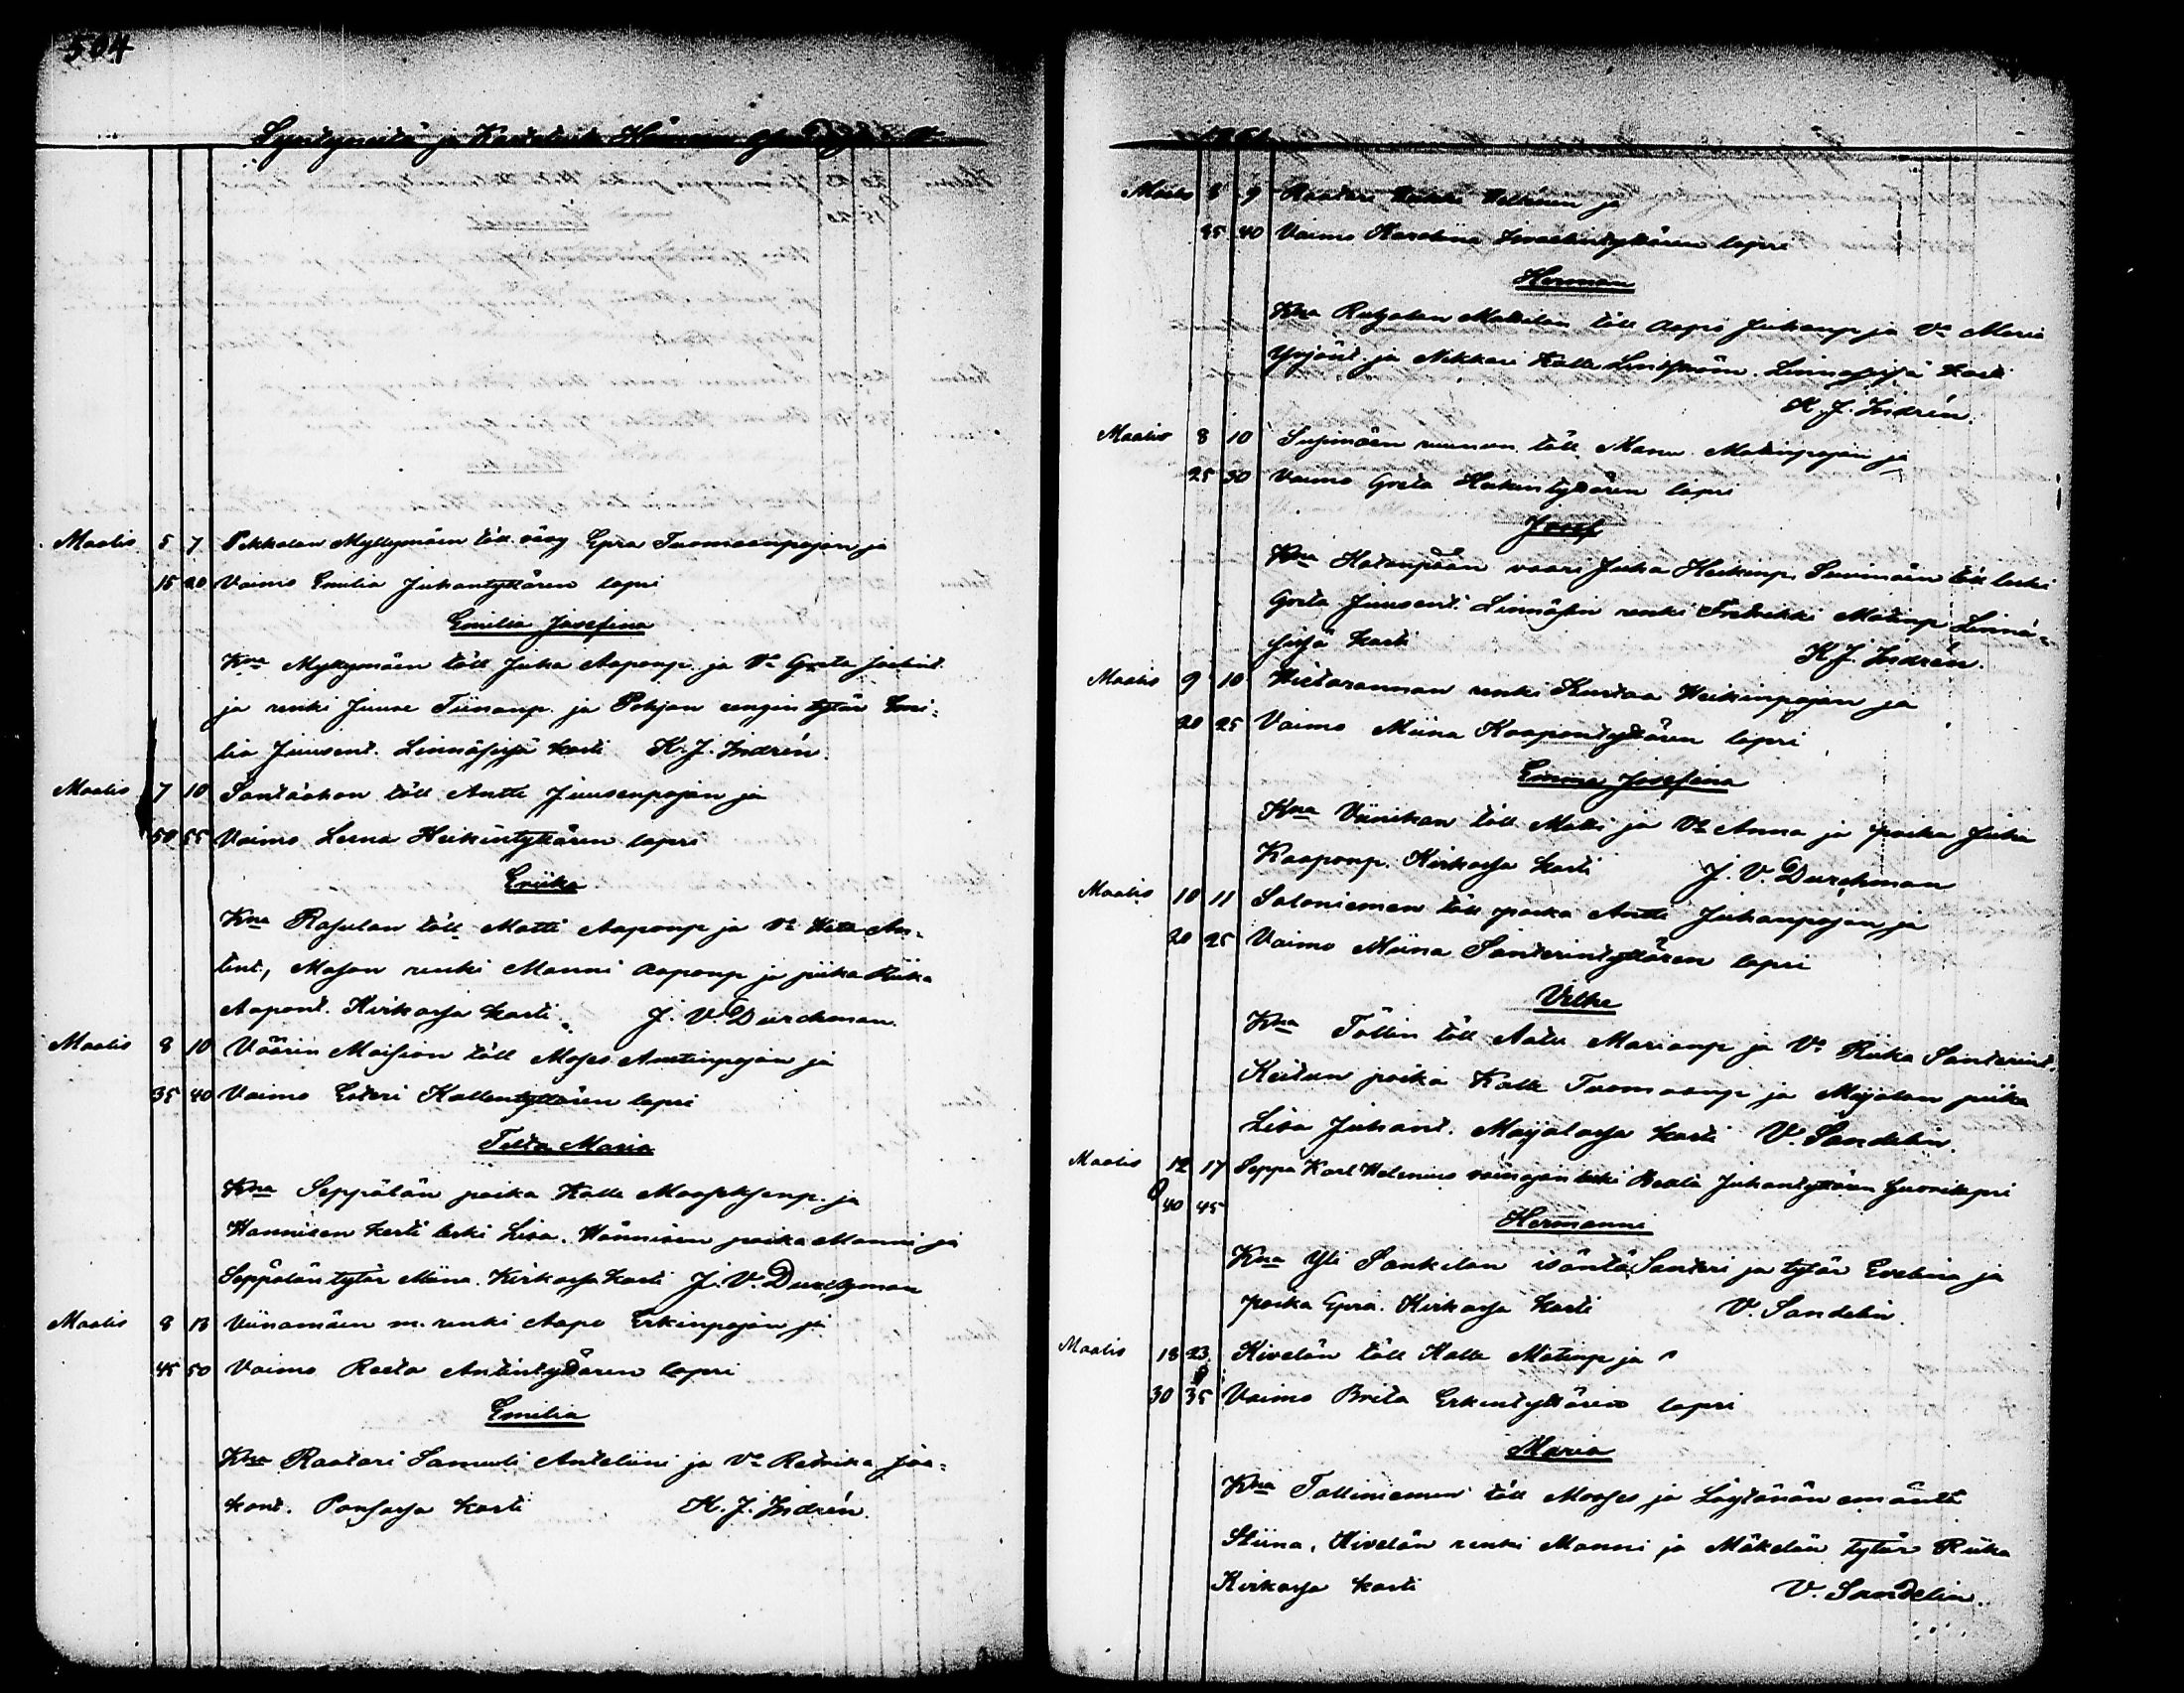 504
Syntyneitä ja Kastetuita
Maalis 5 7 Pekkolan Myllymäen töll. väv. Epra Tuomaanpojan ja
15 20 Vaimo Emilia Juhantyttären lapsi
Emilia Josefina
Kna Myllymäen töll Juha Aaponp. ja Va Greta Joelint.
ja renki Juuse Tiinanp. ja Pohjan rengin tytär Emi-
lia Juusent. Linnäsisjä kasti K. J. Indrén.
Maalis 7 10 Santäahon töll Antti Juusenpojan ja
50 55 Vaimo Leena Heikintyttären lapsi
Eriika
Kna Rasulan töll Matti Aaponp ja Va Heta An-
tint, Mason renki Manni Aaponp ja piika Riika
Aapont. Kirkossa kasti J. V. Durchman.
Maalis 8 10 Väärin Moision töll Moses Antinpojan ja
35 40 Vaimo Esteri Kallentyttären lapsi
Tilta Maria
Kna Seppälän poika Kalle Mooseksenp. ja
Hannisen kesti leski Lisa. Hännisen poika Manni ja
Seppälän tytär Miina. Kirkossa kasti J. V. Durchman
Maalis 8 13 Viinamäen m. renki Aapo Erkinpojan ja
45 50 Vaimo Reeta Antintyttären lapsi
Emilia
Kna Raatari Samueli Anteliini ja Va Retriika Jaa-
kont. Pappassa kasti K. J. Indrén.
Maalis 8 9 Raatari Heikki ja
35 40 Vaimo Karoliina Iisraelintyttären lapsi
Herman
Kna Mattilan töll Aapo Juhanp ja Va Maria
Yrjönt. ja Nikkari Kalle Lindström. Linnasissä kasti
K. J. Indrén.
Maalis 8 10 Supinäen ruunun töll. Manu Matinpojan ja
25 30 Vaimo Greta Heikintyttären lapsi
Josef
Kna Hatanpään vaari Juha Heikinp. Suvimäen töll leski
Greta Juusent. Linnäsin renki Fredrekki Matinp Linnä-
sissä kasti K. J. Indrén.
Maalis 9 10 Hietarannan renki Kustaa Heikinpojan ja
20 25 Vaimo Miina Kaapontyttären lapsi
Emma Josefina
Kna Viinikan töll Matti ja Va Anna ja poika Juha
Kaaponp. Kirkossa kasti J. V. Durchman
Maalis 10 11 Saloniemen töll poika Antti Juhanpojan ja
20 25 Vaimo Miina Santerintyttären lapsi
Vilhe
Kna Töllin töll Aatu Marianp ja Va Riika Santerint.
Keitun poika Kalle Tuomaanp ja Majalan piika
Lisa Juhant. Majalassa kasti V. Sandelin.
Maalis 12 17 Seppä Karl Helenius vainajan leski Beata Juhantyttären huorilapsi
40 45
Hermanni
Kna Yli Sankelan isäntä Santeri ja tytär Evelina ja
poika Epra. Kirkossa kasti V. Sandelin.
Maalis 18 23 Kivelän töll Kalle Matinp ja
30 35 Vaimo Brita Erkintyttären lapsi
Maria
Kna Talliniemen töll Mooses ja Löytänän emäntä
Stiina, Kivelän renki Manni ja Mäkelän tytär Riika
Kirkossa kasti V. Sandelin.